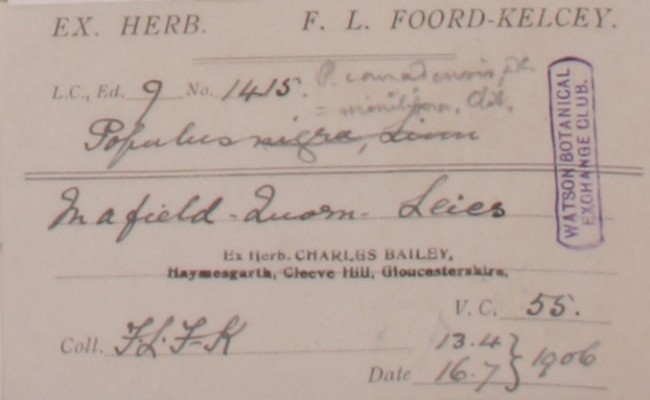 EX. HERB. F. L. FOORD-KELCEY.
L.C., Ed. 9 No. 1415. P. canadensis,
= monilifera, Ait.
Populus nigra, Linn
In a field - Quorn - Leics
WATSON BOTANICAL
EXCHANGE CLUB.
Ex Herb. CHARLES BAILEY,
Haymesgarth, Cleeve Hill, Gloucestershire.
V. C. 55.
Coll. F.L.F-K 13.4
Date 16.7 } 1906